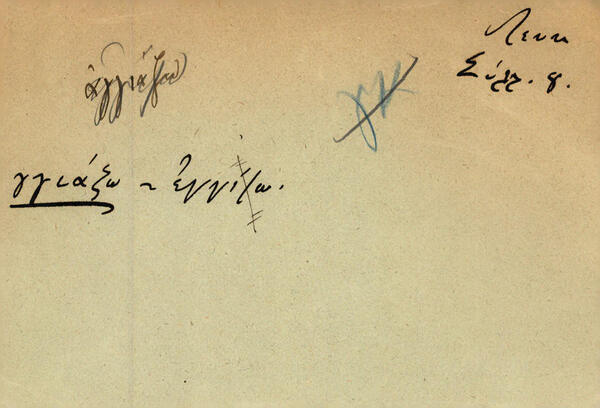 Λευκ
Σύλλ. γ.
ἀγγιάζω
γκ
γγιάζω ~ ἐγγίζω.